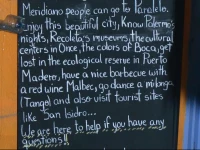 Meridiano people can go to Paralelo.
Enjoy this beautiful city, Know Palermo's
nights, Recoleta's museums, the cultural
centers in Once, the colors of Boca, get
lost in the ecological reserve in Puerto
Madero, have a nice barbecue with
a red wine Malbec, go dance a milonga
(Tango) and also visit tourist sites
like San Isidro...
We are here to help if you have any
questions!!